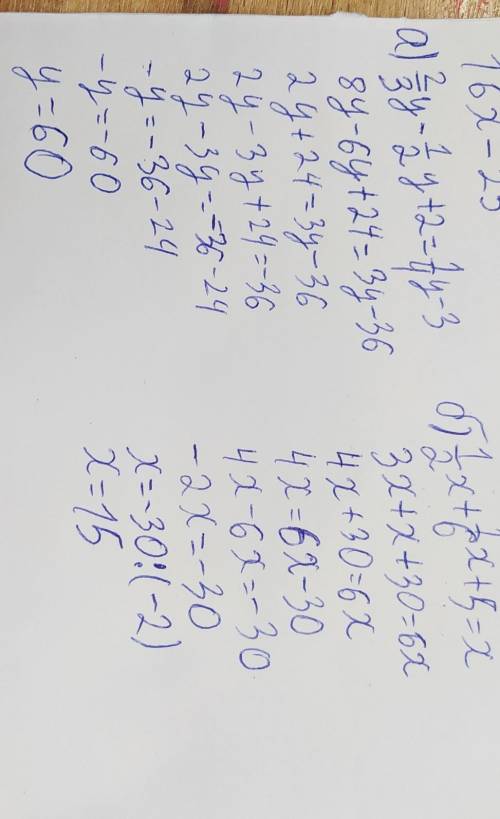 16x - 25
а) 2/3y - 1/2y + 2 = 1/4y - 3
8y - 6y + 24 = 3y - 36
2y + 24 = 3y - 36
2y - 3y + 24 = -36
2y - 3y = -36 - 24
-y = -36 - 24
-y = -60
y = 60
б) 1/2x + 1/6x + 5 = x
3x + x + 30 = 6x
4x + 30 = 6x
4x = 6x - 30
4x - 6x = -30
-2x = -30
x = -30 : (-2)
x = 15